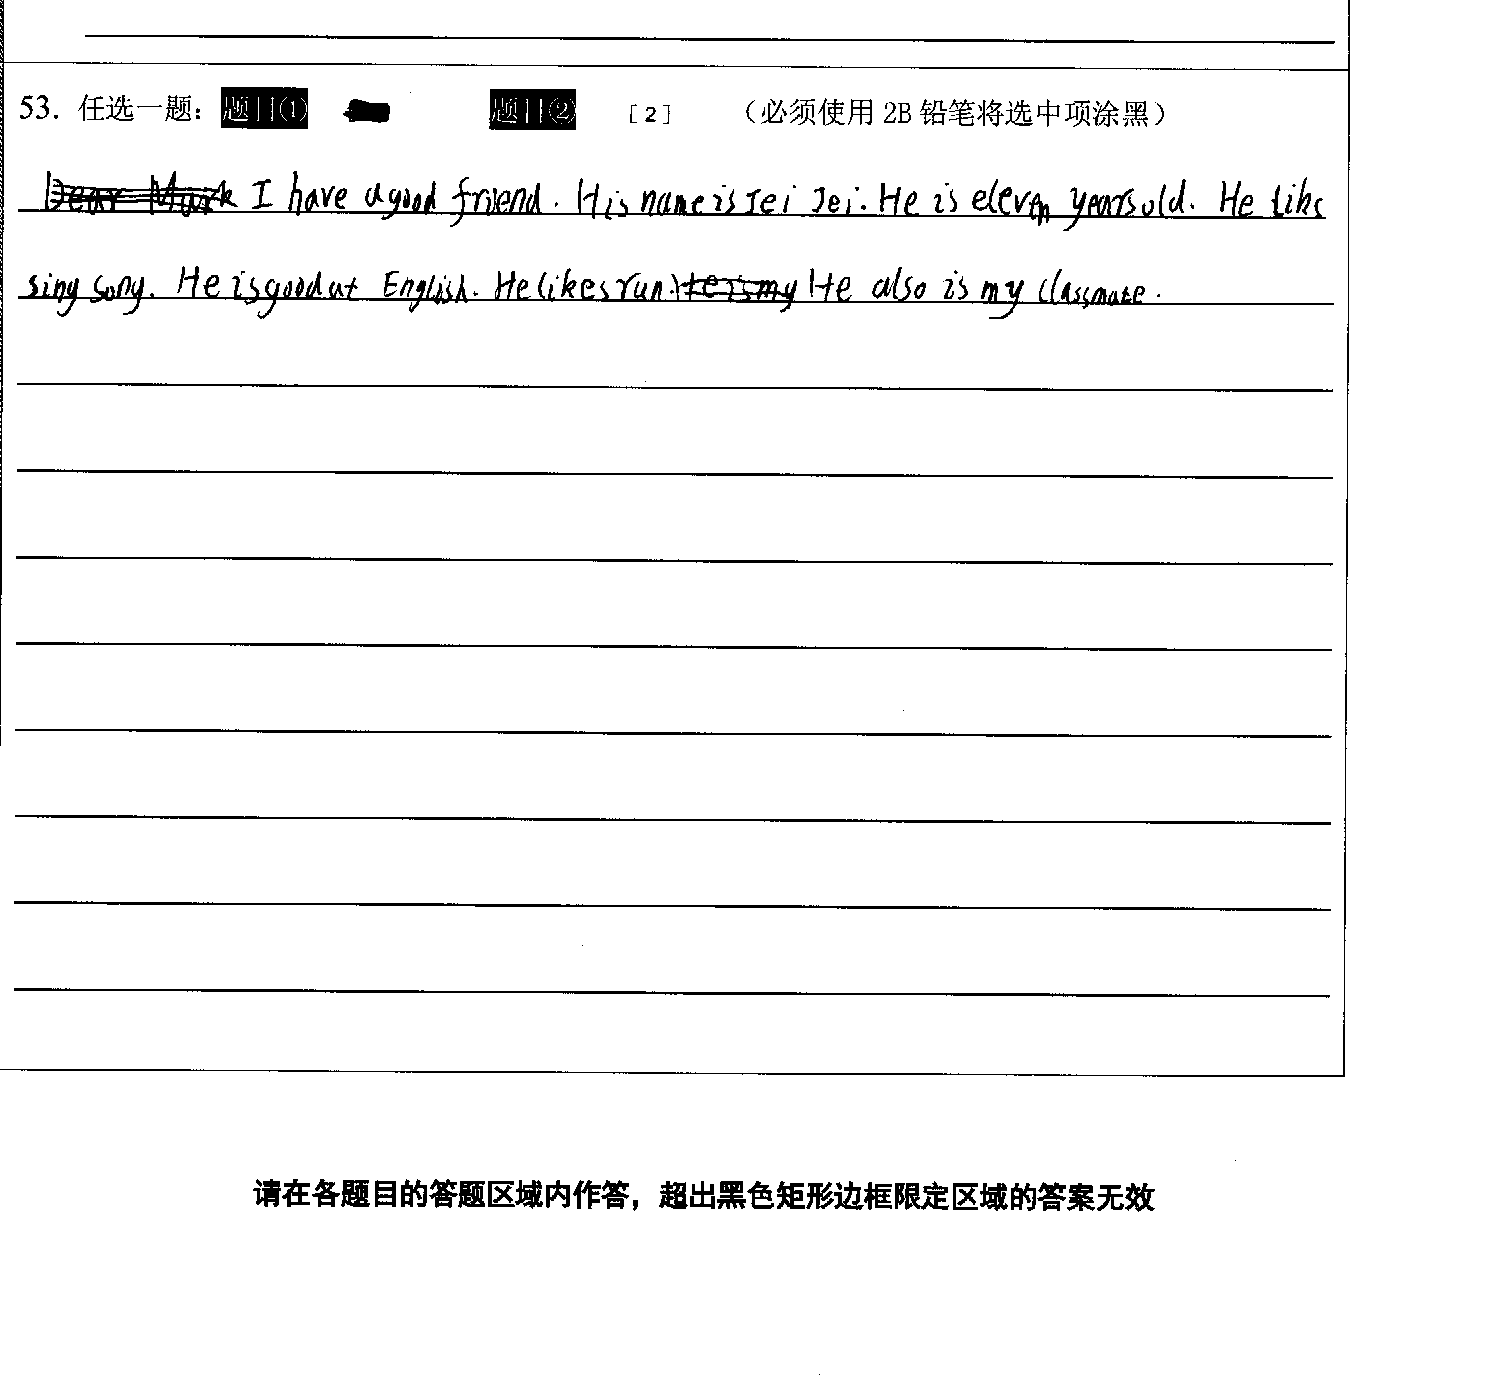 53. 任选一题： 题目① 题目② [2] （必须使用 2B 铅笔将选中项涂黑）
Dear Mark I have a good friend. His name is Jei Jei. He is eleven years old. He like
sing song. He is good at English. He likes run. He is my He also is my classmate.
请在各题目的答题区域内作答，超出黑色矩形边框限定区域的答案无效